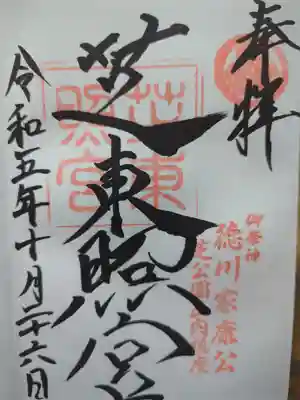 奉拝
御祭神
徳川家康公
芝公園内鎮座
芝東照宮
芝東照宮
令和五年十月二十六日